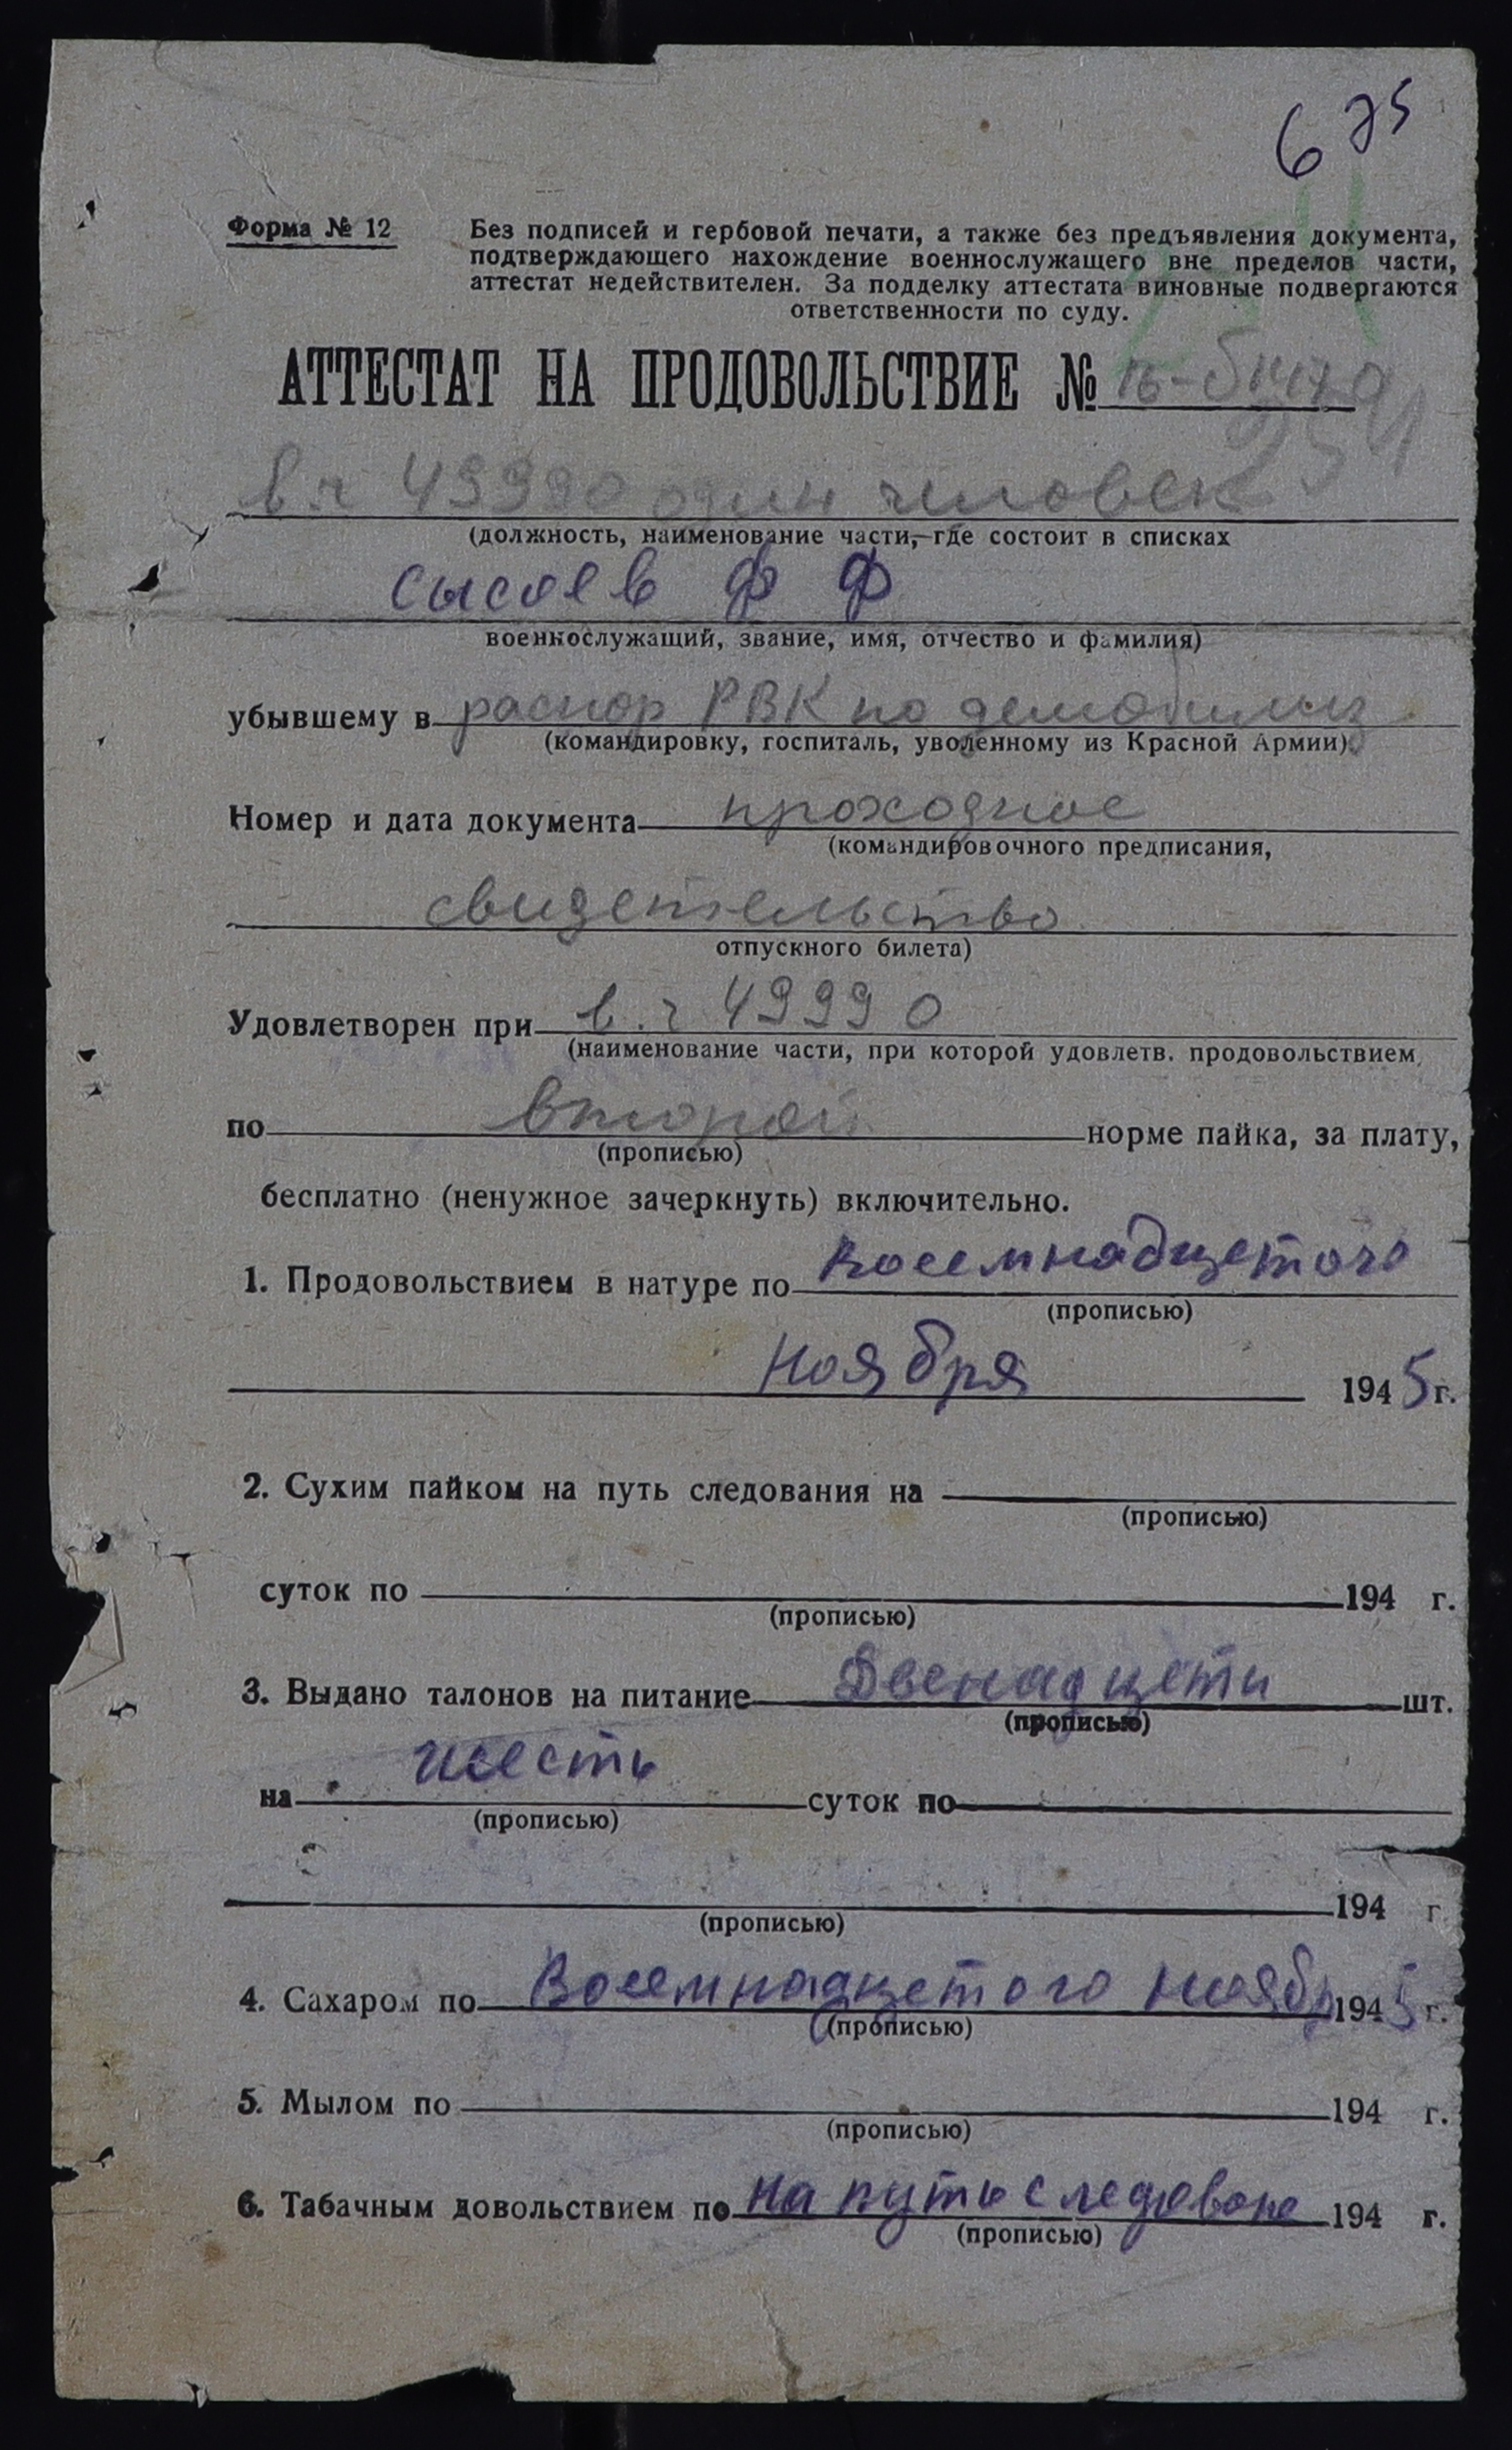 6 75
Форма № 12
Без подписей и гербовой печати, а также без предъявления документа,
подтверждающего нахождение военнослужащего вне пределов части,
аттестат недействителен. За подделку аттестата виновные подвергаются
ответственности по суду.
АТТЕСТАТ НА ПРОДОВОЛЬСТВИЕ №
в.ч 49990 один человек
(должность, наименование части, где состоит в списках
Сысоев Ф Ф
военнослужащий, звание, имя, отчество и фамилия)
убывшему в распор РВК по демобилиз
(командировку, госпиталь, уволенному из Красной Армии)
Номер и дата документа проходное
(командировочного предписания,
свидетельство
отпускного билета)
Удовлетворен при в.ч 49990
(наименование части, при которой удовлетв. продовольствием
по второй норме пайка, за плату,
(прописью)
бесплатно (ненужное зачеркнуть) включительно.
1. Продовольствием в натуре по Восемнадцетого
(прописью)
Ноября 1945 г.
2. Сухим пайком на путь следования на
(прописью)
суток по 194 г.
(прописью)
3. Выдано талонов на питание Двенадцети шт.
(прописью)
на шесть суток по
(прописью)
194 г
(прописью)
4. Сахаром по Восемнадцетого Ноябр 1945 г.
(прописью)
5. Мылом по 194 г.
(прописью)
6. Табачным довольствием по на путь следоване 194 г.
(прописью)